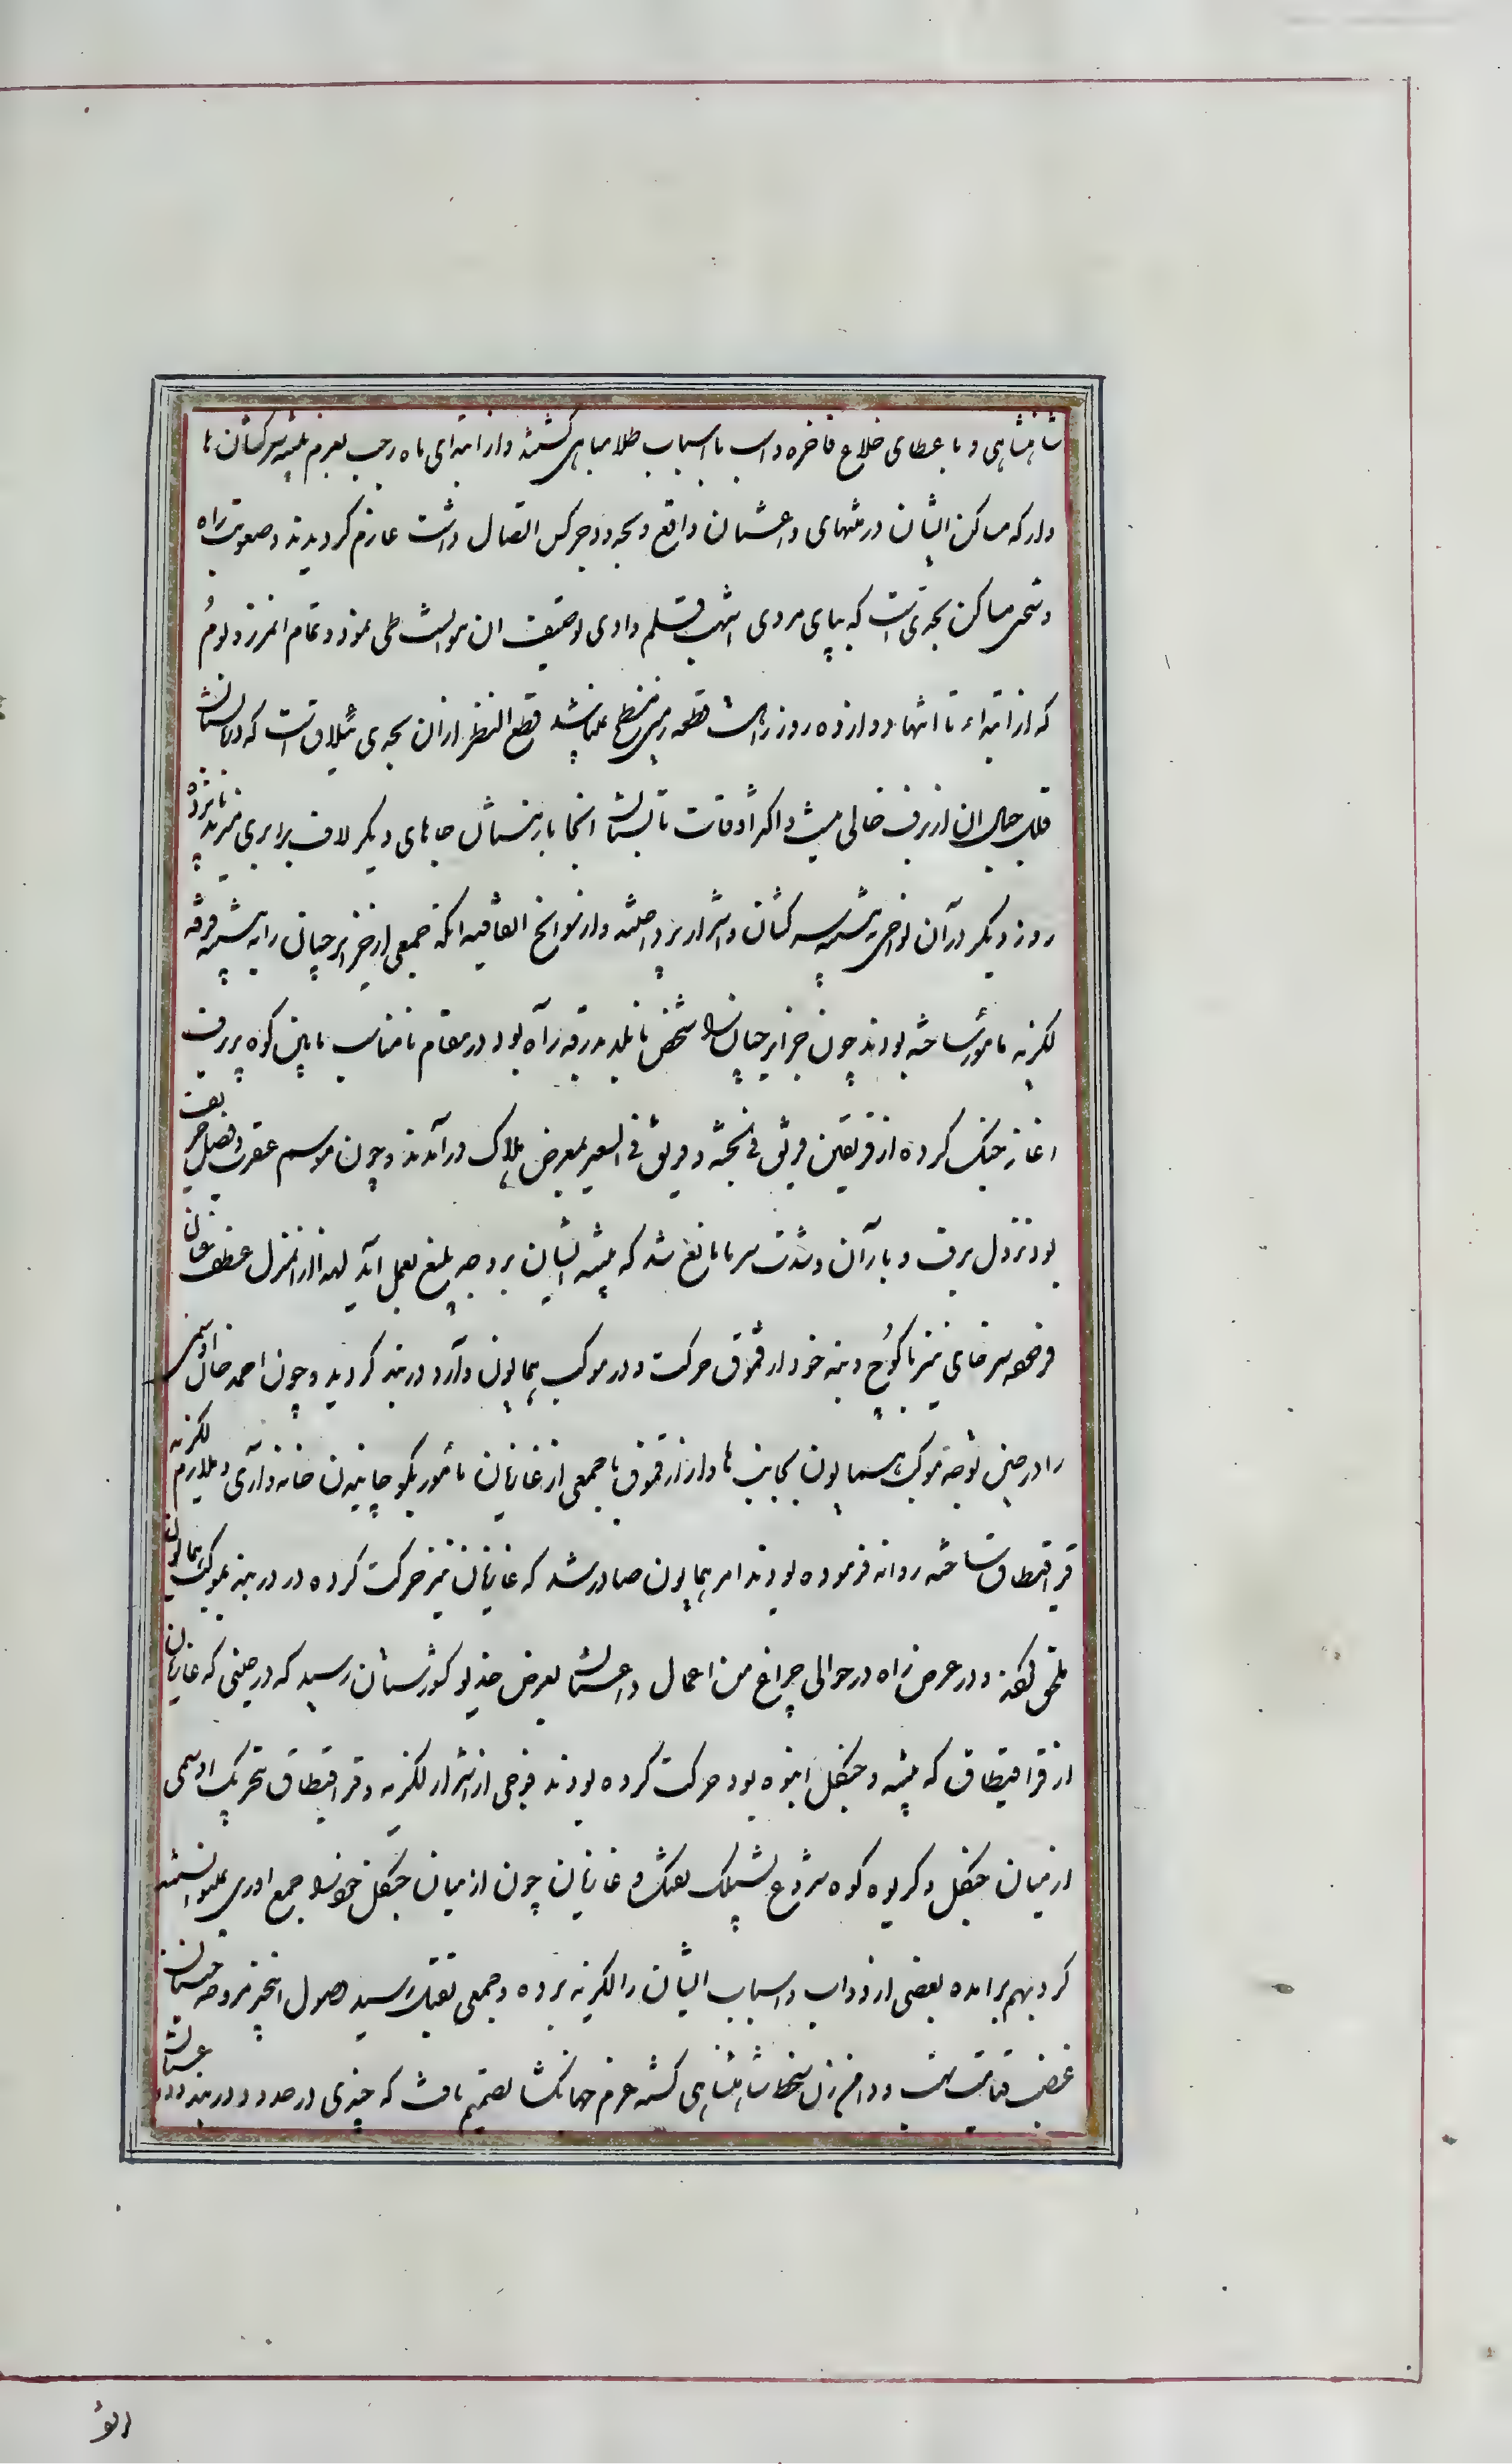 شاهنشاهی و با عطای خلاع فاخره و اسب با اسباب طلا مباهی گشته و از ابتدای ماه رجب بعزم تنبیه سرکشان تا
وار که مساکن ایشان در منتهای داغستان واقع و بحدود چرکس اتصال داشت عازم گردیدند و صعوبت راه
و سختی مساکن بحدیست که بپای مردی اشهب قلم وادی توصیف آن توانست طی نمود و تمام المرز و بوم
که از ابتداء تا انتها دوازده روز راهست قطعه زمین مسطح نمیباشد قطع النظر از آن بحدی ییلاقست که در تابستان
قلل جبال آن از برف خالی میشود اکثر اوقات تابستان آنجا با زمستان جاهای دیگر لاف برابری میزند پانزده
روز دیگر در آن نواحی به تنبیه سرکشان و اشرار پرداخته و از سوانح اتفاقیه آنکه جمعی از جزایرچیان را به تنبیه فرقه
لکزیه مامور ساخته بودند چون جزایرچیان را شخص نابلد بدرقه راه بود در مقام نامناسب پایین کوه پربرف
اغاز جنگ کرده از فریقین فریق فی الجنه و فریق فی السعیر بمعرض هلاک درآمدند و چون موسم عقرب و فصل خریف
بود نزول برف و باران و شدت سرما مانع شد که تنبیه ایشان بر وجه بلیغ بعمل آید لهذا از آن منزل عطف عنان
فرموده سرخای نیز با کوچ و بنه خود از قموق حرکت و در موکب همایون وارد دربند گردید و چون احمد خان اوسمی
را در حین توجه موکب همایون بجانب ها وار از قموق با جمعی از غازیان مأمور بکوچانیدن خانه واری و ملازم لکزیه
قراقیطاق ساخته روانه فرموده بودند امر همایون صادر شد که غازیان نیز حرکت کرده در دربند بموکب همایون
ملحق گردند و در عرض راه در حوالی چراغ من اعمال داغستان بعرض خدیو کشورستان رسید که در حینی که غازیان
از قراقیطاق که بیشه و جنگل انبوه بود حرکت کرده بودند فوجی از اشرار لکزیه و قراقیطاق بتحریک اوسمی
از میان جنگل و کریوه کوه شروع بشلیک تفنگ و غازیان چون از میان جنگل خود را جمع اوری نمیتوانستند
کرد بهم برامده بعضی از دواب و اسباب ایشان را لکزیه برده و جمعی بقتل رسید وصول این خبر مروحه جنبان
غضب قیامت لهب و دامن زن سخط شاهنشاهی گشته عزم جهانگشا تصمیم یافت که چندی در حدود دربند و داغستان
اتو